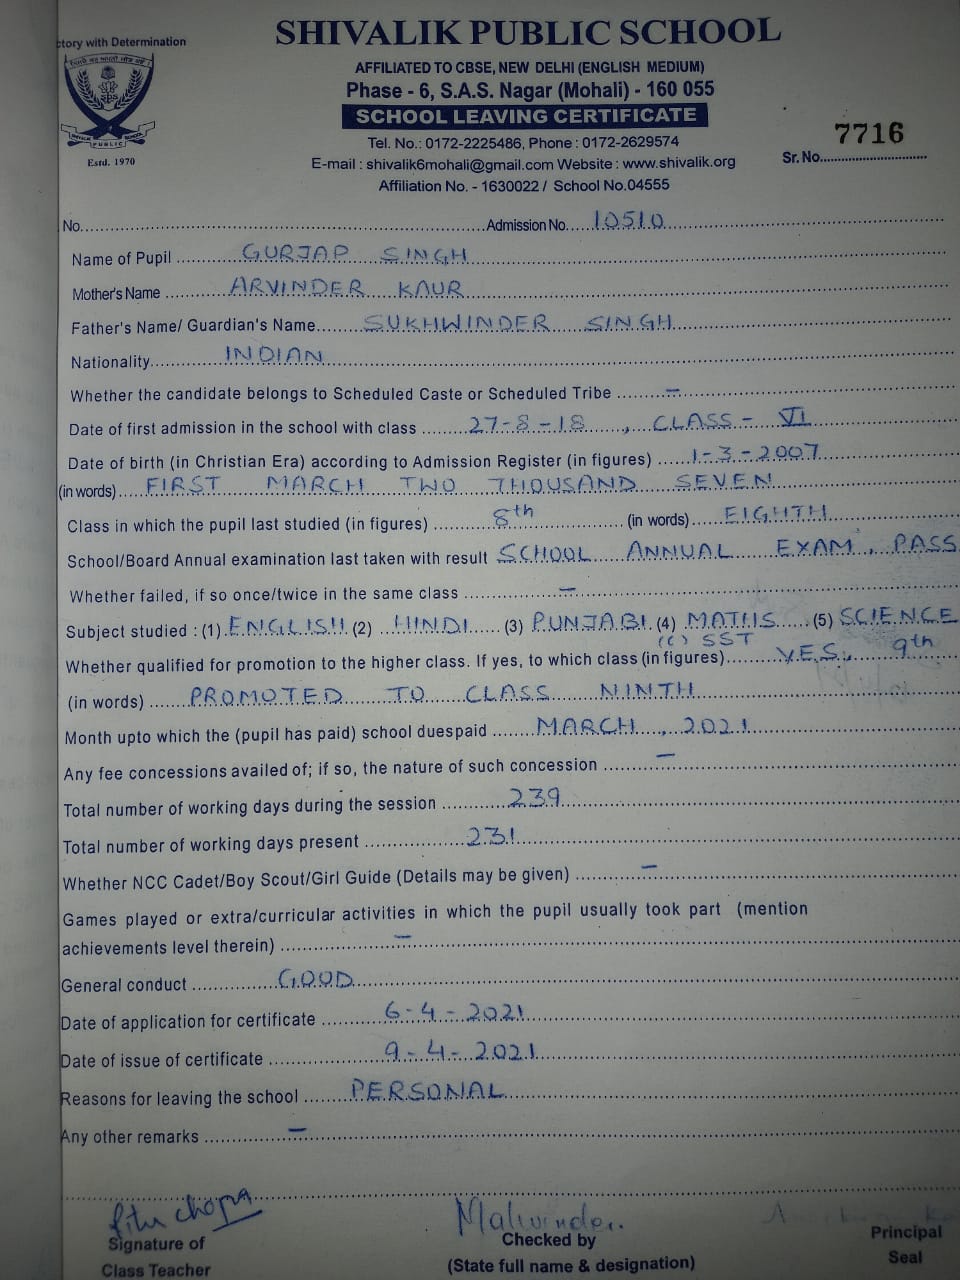 ctory with Determination
SHIVALIK PUBLIC SCHOOL
AFFILIATED TO CBSE, NEW DELHI (ENGLISH MEDIUM)
Phase - 6, S.A.S. Nagar (Mohali) - 160 055
SCHOOL LEAVING CERTIFICATE
Tel. No.: 0172-2225486, Phone : 0172-2629574
E-mail : shivalik6mohali@gmail.com Website : www.shivalik.org
Affiliation No. - 1630022 / School No.04555
SPS
SHIVALIK PUBLIC SCHOOL
Estd. 1970
7716
Sr. No.
No. Admission No. 10510
Name of Pupil GURJAP SINGH
Mother's Name ARVINDER KAUR
Father's Name/ Guardian's Name SUKHWINDER SINGH
Nationality INDIAN
Whether the candidate belongs to Scheduled Caste or Scheduled Tribe –
Date of first admission in the school with class 27-8-18, CLASS - VI
Date of birth (in Christian Era) according to Admission Register (in figures) 1-3-2007
(in words) FIRST MARCH TWO THOUSAND SEVEN
Class in which the pupil last studied (in figures) 8th (in words) EIGHTH
School/Board Annual examination last taken with result SCHOOL ANNUAL EXAM, PASS
Whether failed, if so once/twice in the same class –
Subject studied : (1) ENGLISH (2) HINDI (3) PUNJABI (4) MATHS (5) SCIENCE
(6) SST
Whether qualified for promotion to the higher class. If yes, to which class (in figures) YES, 9th
(in words) PROMOTED TO CLASS NINTH
Month upto which the (pupil has paid) school duespaid MARCH, 2021
Any fee concessions availed of; if so, the nature of such concession –
Total number of working days during the session 239
Total number of working days present 231
Whether NCC Cadet/Boy Scout/Girl Guide (Details may be given) –
Games played or extra/curricular activities in which the pupil usually took part (mention
achievements level therein) –
General conduct GOOD
Date of application for certificate 6-4-2021
Date of issue of certificate 9-4-2021
Reasons for leaving the school PERSONAL
Any other remarks –
Ritu Chopra Malwinder
Signature of Checked by Principal
Class Teacher (State full name & designation) Seal